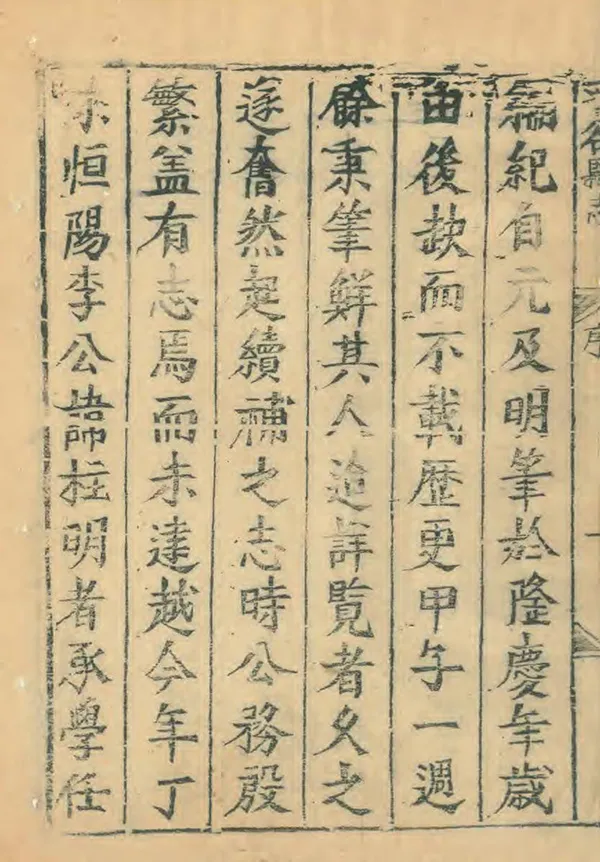 谷縣志
序
編紀自元及明筆於隆慶年歲
由後缺而不載歷更甲子一週
餘秉筆鮮其人迨詳覧者久之
遂奮然起續補之志時公務殷
繁盖有志焉而未逮越今年丁
未恒陽李公諱柱明者承學任